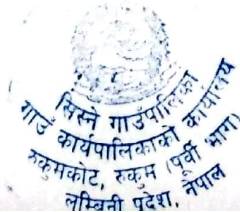 सिस्ने गाउँपालिका
गाउँ कार्यपालिकाको कार्यालय
रुकुमकोट, रुकुम (पूर्वी भाग)
लुम्बिनी प्रदेश, नेपाल